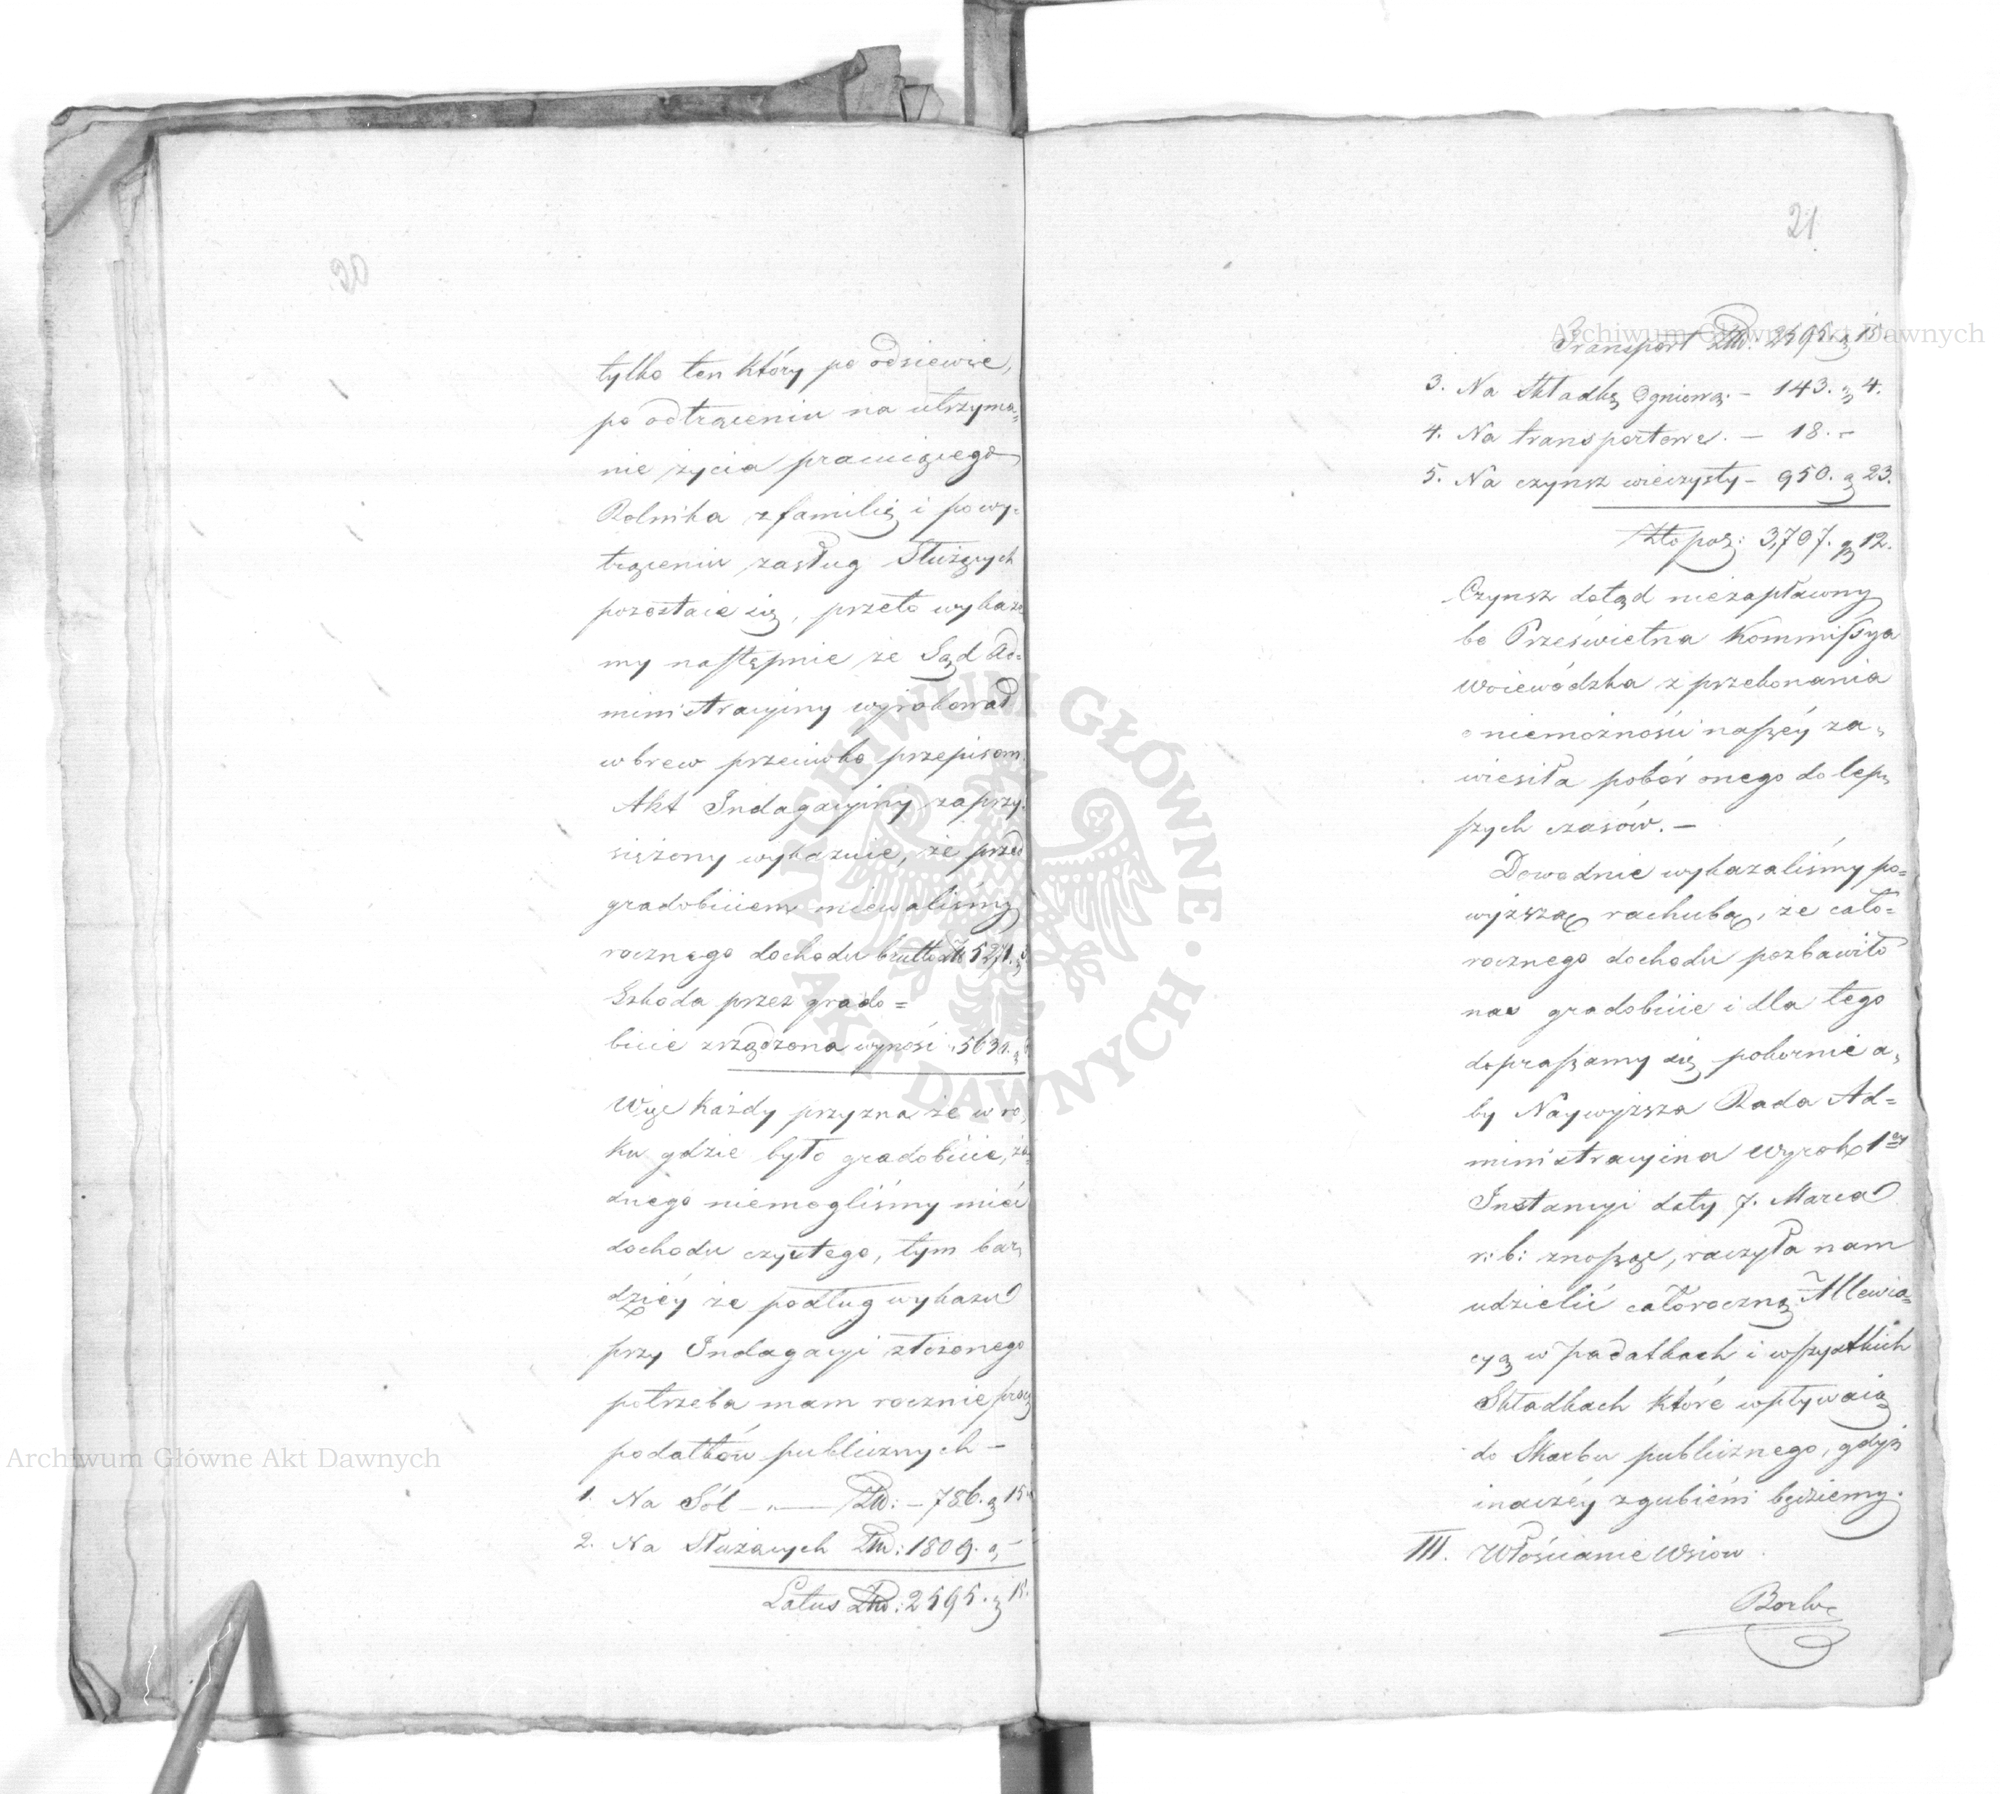 20
tylko ten który po odsiewie,
po odtrąceniu na utrzyma=
nie życia pracuiącego
Rolnika z familią i powy=
trąceniu zasług Służących
pozostaie się, przeto wykaże
my następnie że Sąd Ad=
ministracyiny wyrokował
wbrew przeciwko przepisom
Akt Indagacyiny zaprzy=
siężony wykazuie, że przed
gradobiciem miewaliśmy
rocznego dochodu brutto
Szkoda przez grado=
bicie zrządzona wynosi
Więc każdy przyzna że w ro=
ku gdzie było gradobicie, ża=
dnego niemogliśmy mieć
dochodu czystego, tym bar=
dziéy że podług wykazu
przy Indagacyi złożonego
potrzeba nam rocznie prócz
podatków publicznych –
1. Na Sól – „ – Złtp: – 786. g 15
2. Na Służących Złtp: 1809. g –
Latus Złtp: 2595. g 15.
21
Transport Złtp: 2595. g 15.
3. Na Składkę Ogniową. – 143. g 4.
4. Na transportowe. – 18. –
5. Na czynsz wieczysty – 950. g 23.
Złto pol: 3,707. g 12.
Czynsz dotąd niezapławny
bo Prześwietna Kommissya
Woiewódzka z przekonania
o niemożności naszéy za=
wiesiła pobór onego do lep=
szych czasów. –
Dowodnie wykazaliśmy po=
wyższą rachubą, że cało=
rocznego dochodu pozbawiło
nas gradobicie i dla tego
dopraszamy się pokornie a=
by Naywyższa Rada Ad=
ministracyina Wyrok 1ey
Instancyi daty 7. Marca
r: b: znosząc, raczyła nam
udzielić całoroczną Allewia=
cyą w podatkach i wszystkich
Składkach które wpływaią
do Skarbu publicznego, gdyż
inaczéy zgubieni będziemy.
III. Włościanie Wsiów
Archiwum Główne Akt Dawnych
Archiwum Główne Akt Dawnych
ARCHIWUM GŁÓWNE · AKT DAWNYCH ·